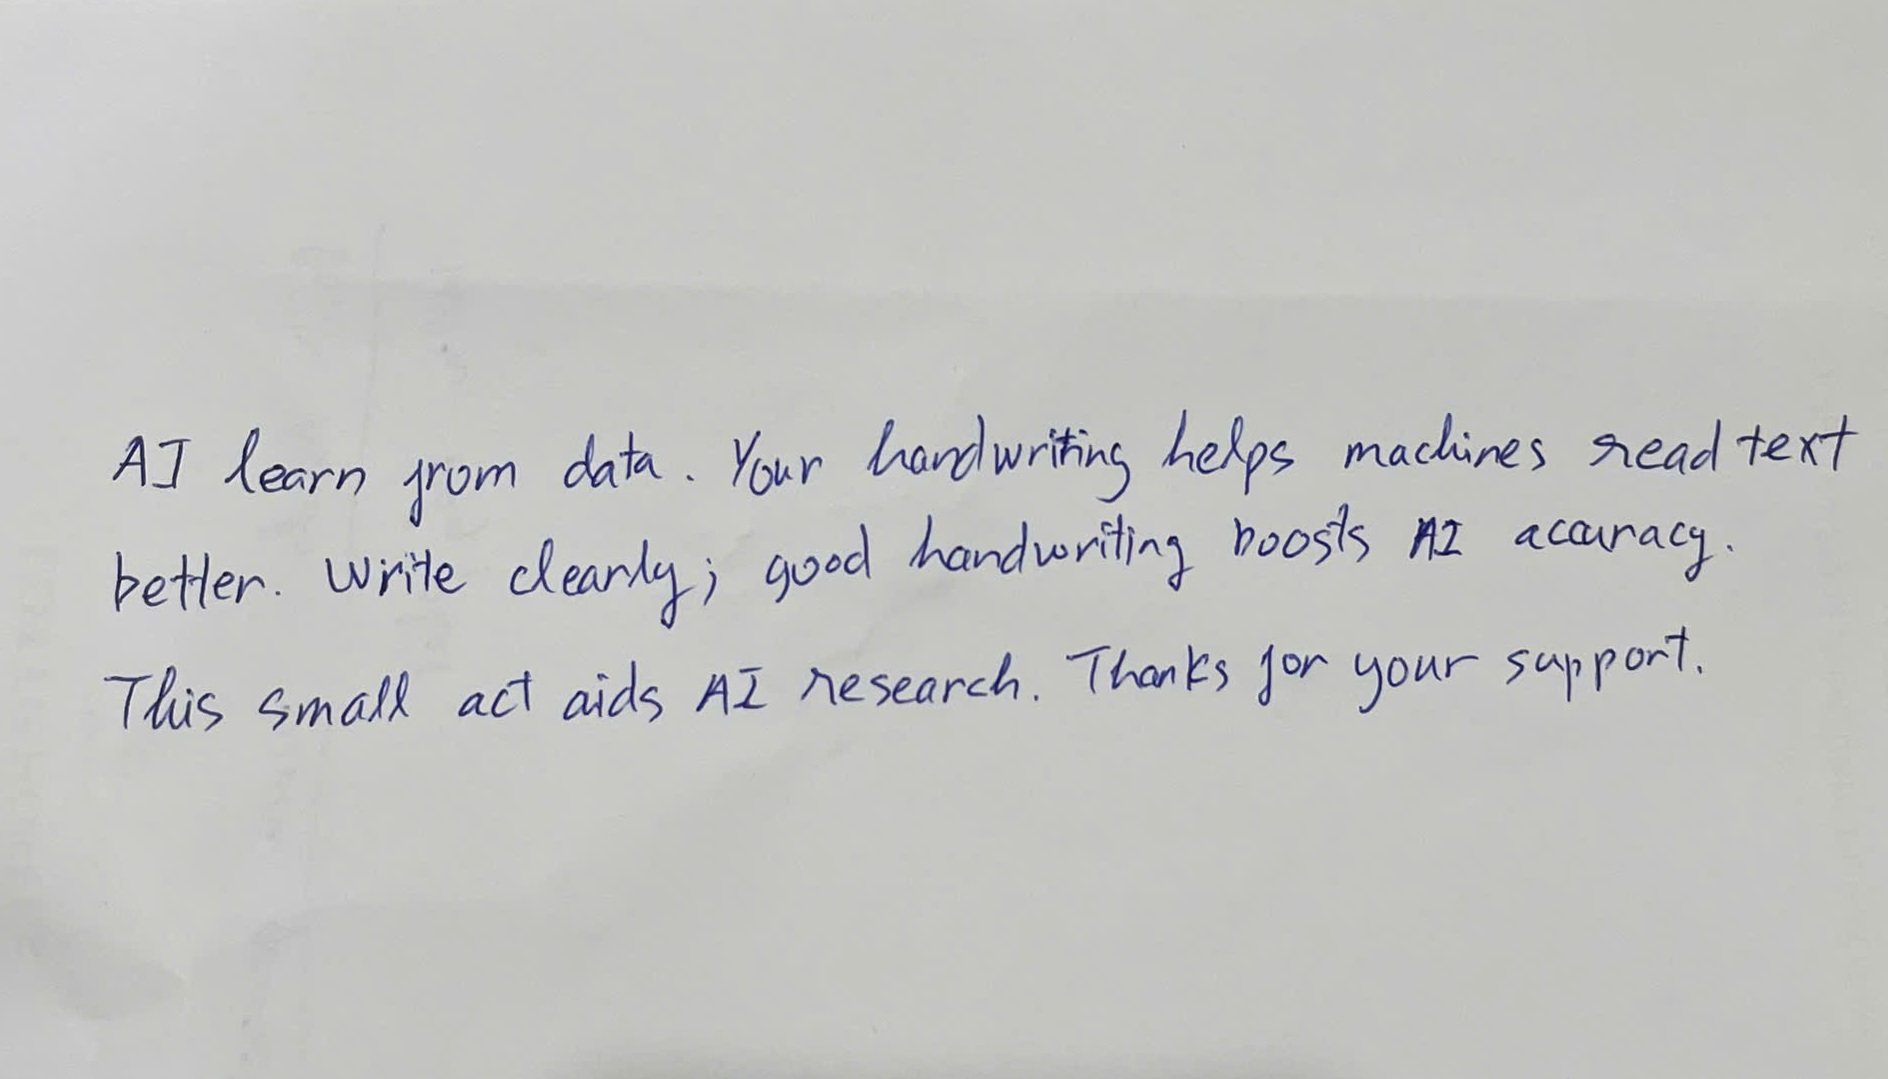 AI learn from data. Your handwriting helps machines read text
better. Write clearly; good handwriting boosts AI accuracy.
This small act aids AI research. Thanks for your support.